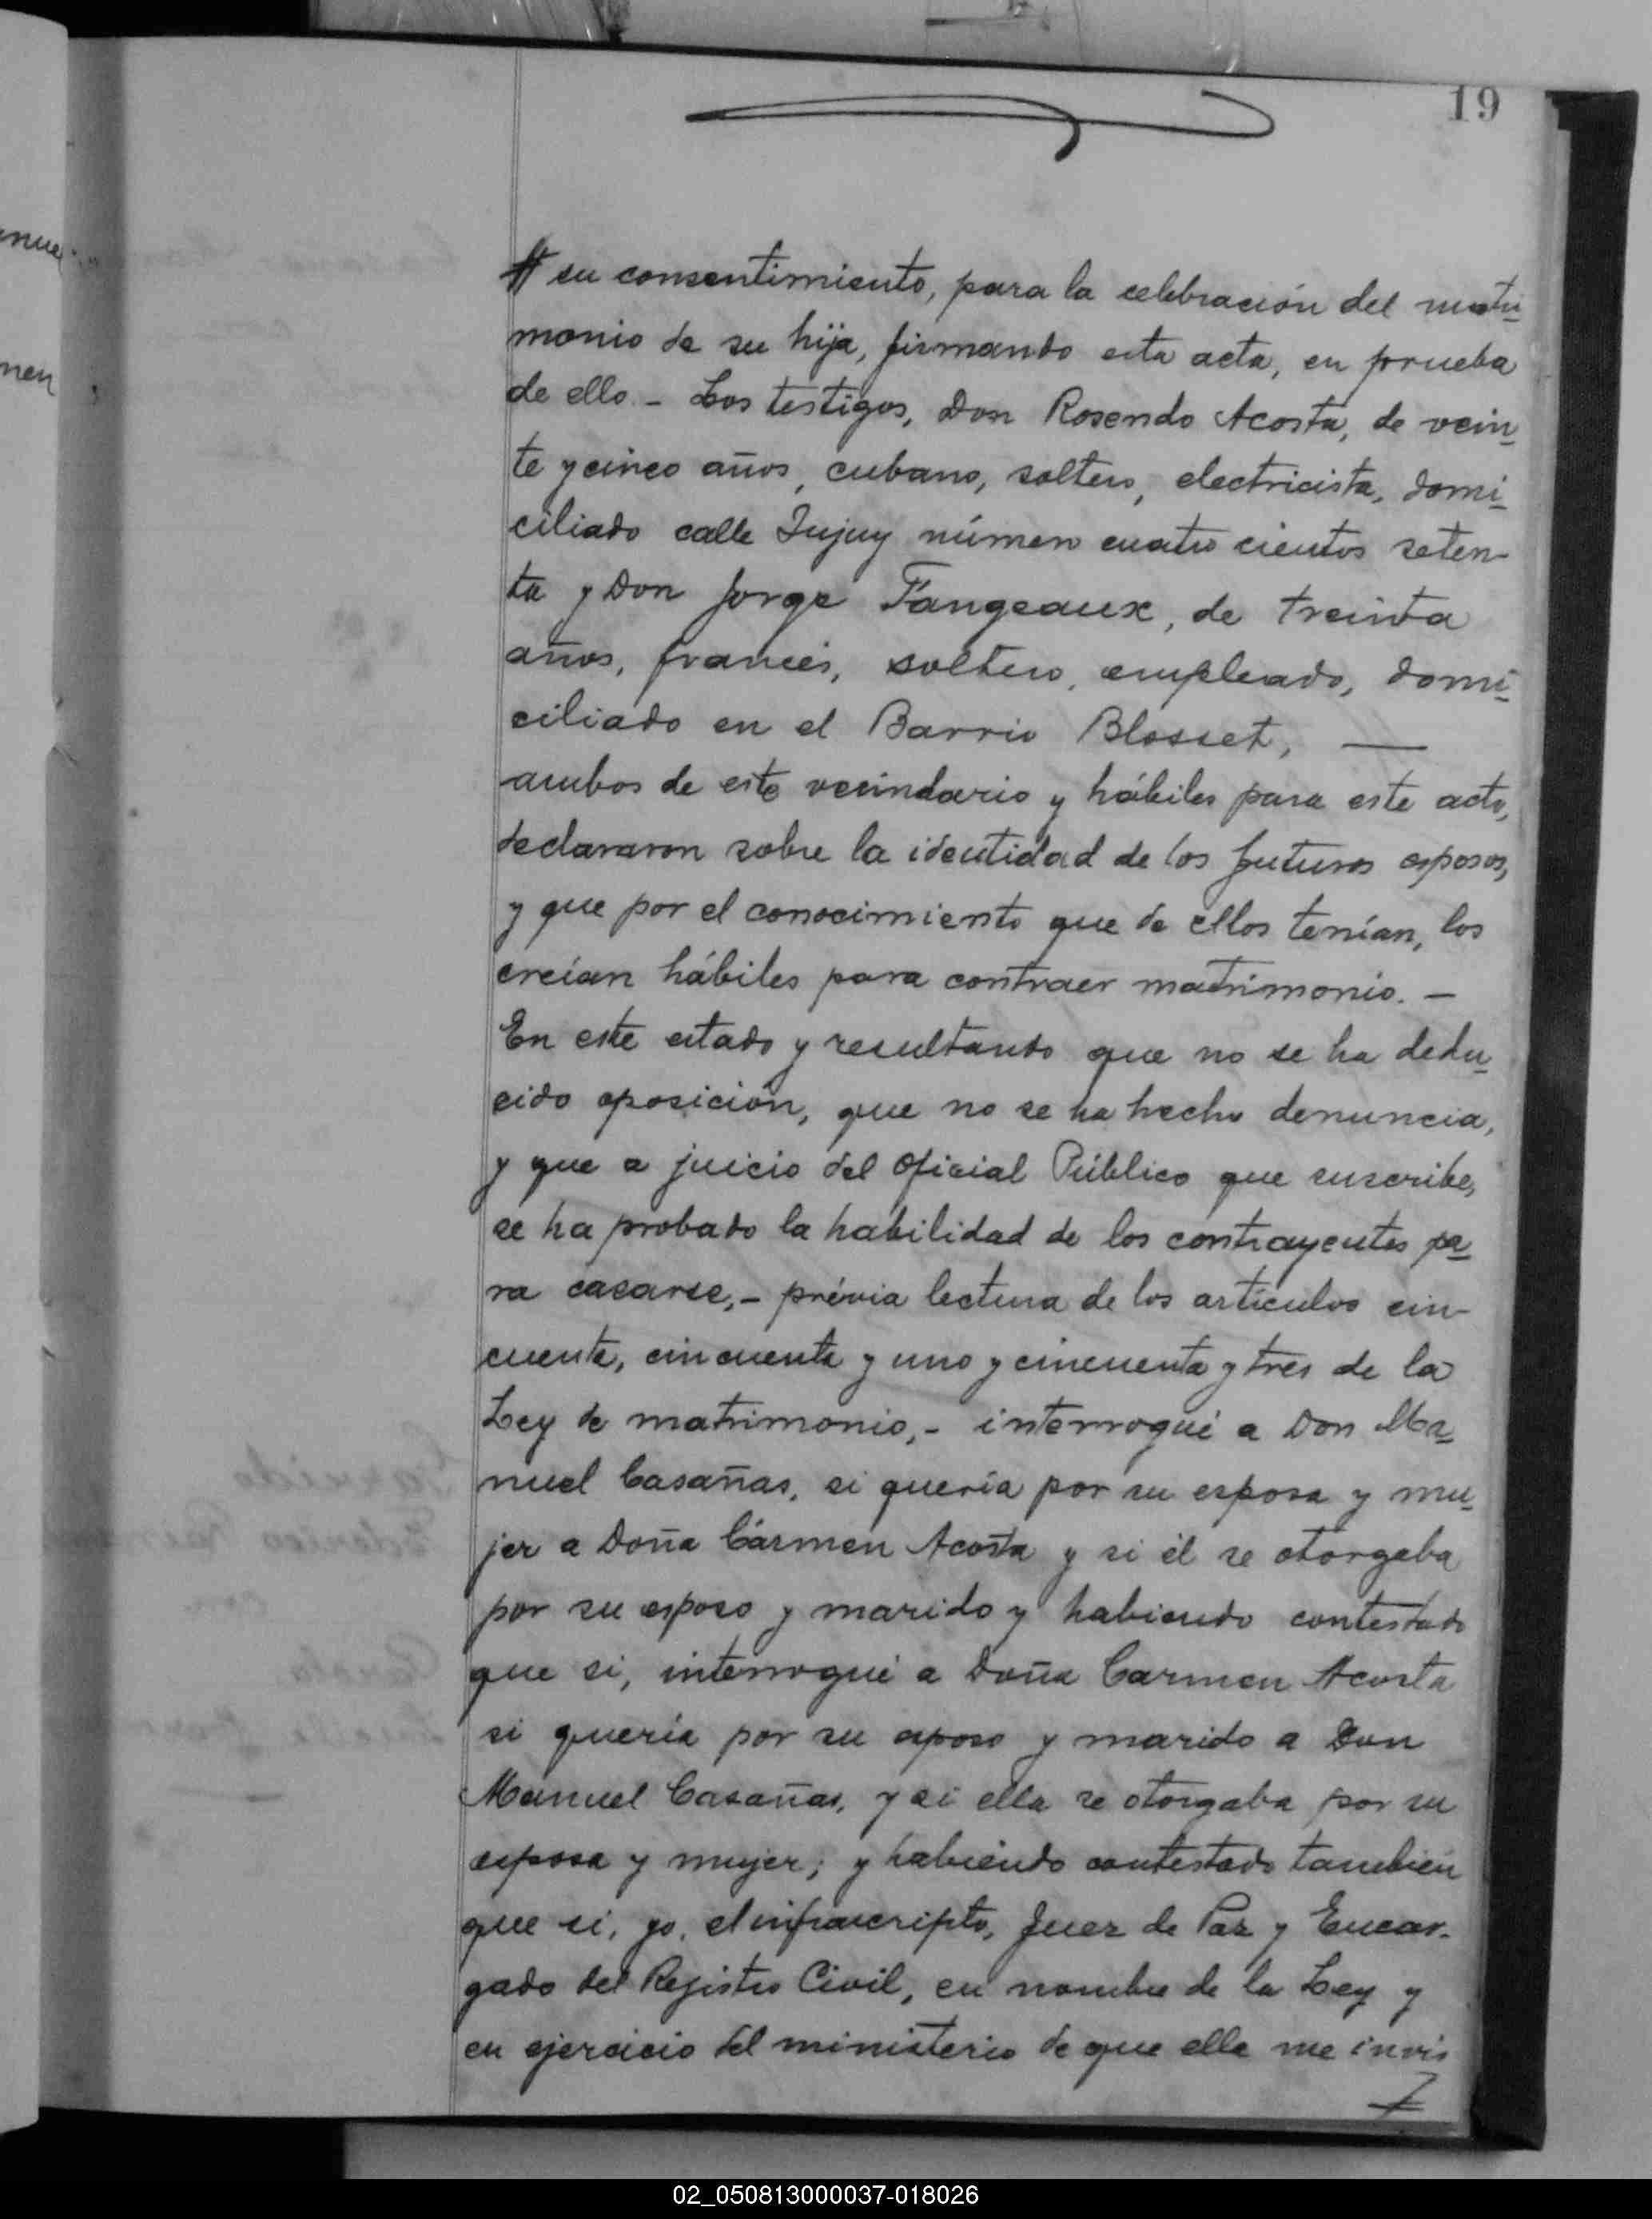 19
su consentimiento, para la celebración del matri
monio de su hija, firmando esta acta, en prueba
de ello.- Los testigos, Don Rosendo Acosta, de vein
te y cinco años, cubano, soltero, electricista, domi
ciliado calle Jujuy número cuatro cientos seten
ta y Don Jorge Fangeaux, de treinta
años, francés, soltero, empleado, domi
ciliado en el Barrio Blosset, —
ambos de este vecindario y hábiles para este acto,
declararon sobre la identidad de los futuros esposos,
y que por el conocimiento que de ellos tenían, los
creían hábiles para contraer matrimonio. -
En este estado y resultando que no se ha dedu
cido oposición, que no se ha hecho denuncia,
y que a juicio del Oficial Público que suscribe,
se ha probado la habilidad de los contrayentes pa
ra casarse,- prévia lectura de los artículos cin
cuenta, cincuenta y uno y cincuenta y tres de la
Ley de matrimonio,- interrogué a Don Ma
nuel Casañas, si quería por su esposa y mu
jer a Doña Cármen Acosta y si él se otorgaba
por su esposo y marido y habiendo contestado
que si, interrogué a Doña Carmen Acosta
si quería por su esposo y marido a Don
Manuel Casañas, y si ella se otorgaba por su
esposa y mujer; y habiendo contestado también
que si, yo, el infrascripto, Juez de Paz y Encar-
gado del Registro Civil, en nombre de la Ley y
en ejercicio del ministerio de que ella me invis
02_050813000037-018026